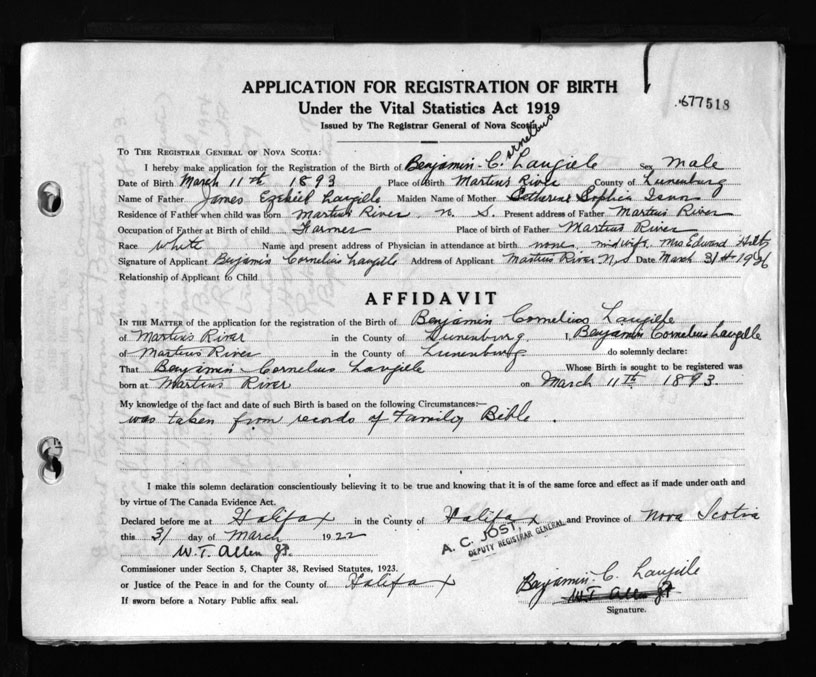 APPLICATION FOR REGISTRATION OF BIRTH
Under the Vital Statistics Act 1919
Issued by The Registrar General of Nova Scotia
677518
TO THE REGISTRAR GENERAL OF NOVA SCOTIA:
I hereby make application for the Registration of the Birth of Benjamin C. ornelius Langille Sex Male
Date of Birth March 11th 1893 Place of Birth Martins River County of Lunenburg
Name of Father James Ezekiel Langille Maiden Name of Mother Catherine Sophia
Residence of Father when child was born Martins River, N. S. Present address of Father Martins River
Occupation of Father at Birth of child Farmer Place of birth of Father Martins River
Race White Name and present address of Physician in attendance at birth none, midwife, Mrs Edward Hiltz
Signature of Applicant Benjamin Cornelius Langille Address of Applicant Martins River N.S Date March 31st 1926
Relationship of Applicant to Child
AFFIDAVIT
IN THE MATTER of the application for the registration of the Birth of Benjamin Cornelius Langille
of Martins River in the County of Lunenburg, I, Benjamin Cornelius Langille
of Martins River in the County of Lunenburg do solemnly declare:
That Benjamin Cornelius Langille Whose Birth is sought to be registered was
born at Martins River on March 11th 1893.
My knowledge of the fact and date of such Birth is based on the following Circumstances:—
was taken from records of Family Bible.
I make this solemn declaration conscientiously believing it to be true and knowing that it is of the same force and effect as if made under oath and
by virtue of The Canada Evidence Act.
Declared before me at Halifax in the County of Halifax and Province of Nova Scotia
this 31 day of March 1922
A. C. JOST,
DEPUTY REGISTRAR GENERAL
W. T. Allen JP.
Commissioner under Section 5, Chapter 38, Revised Statutes, 1923.
or Justice of the Peace in and for the County of Halifax
Benjamin C. Langille
W T Allen JP
If sworn before a Notary Public affix seal.
Signature.